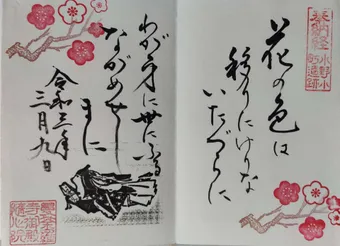 奉納経
小野小町遺跡
花の色は
移りにけりな
いたづらに
わが身に世にふる
ながめせし
まに
令和三年
三月九日
随心院